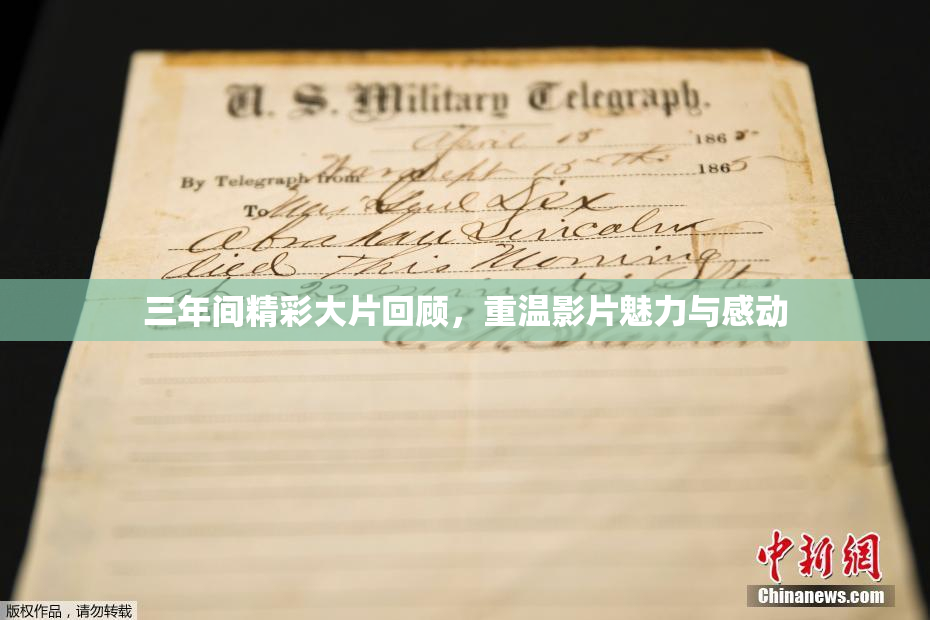 U. S. Military Telegraph.
April 15 1865
By Telegraph from War Dept 15th 1865
To Maj Genl Dix
Abraham Lincoln
died This Morning
22 minutes after
三年间精彩大片回顾，重温影片魅力与感动
E. M. Stanton
中新网
Chinanews.com
版权作品，请勿转载